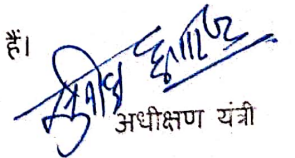 हैं।
अधीक्षण यंत्री